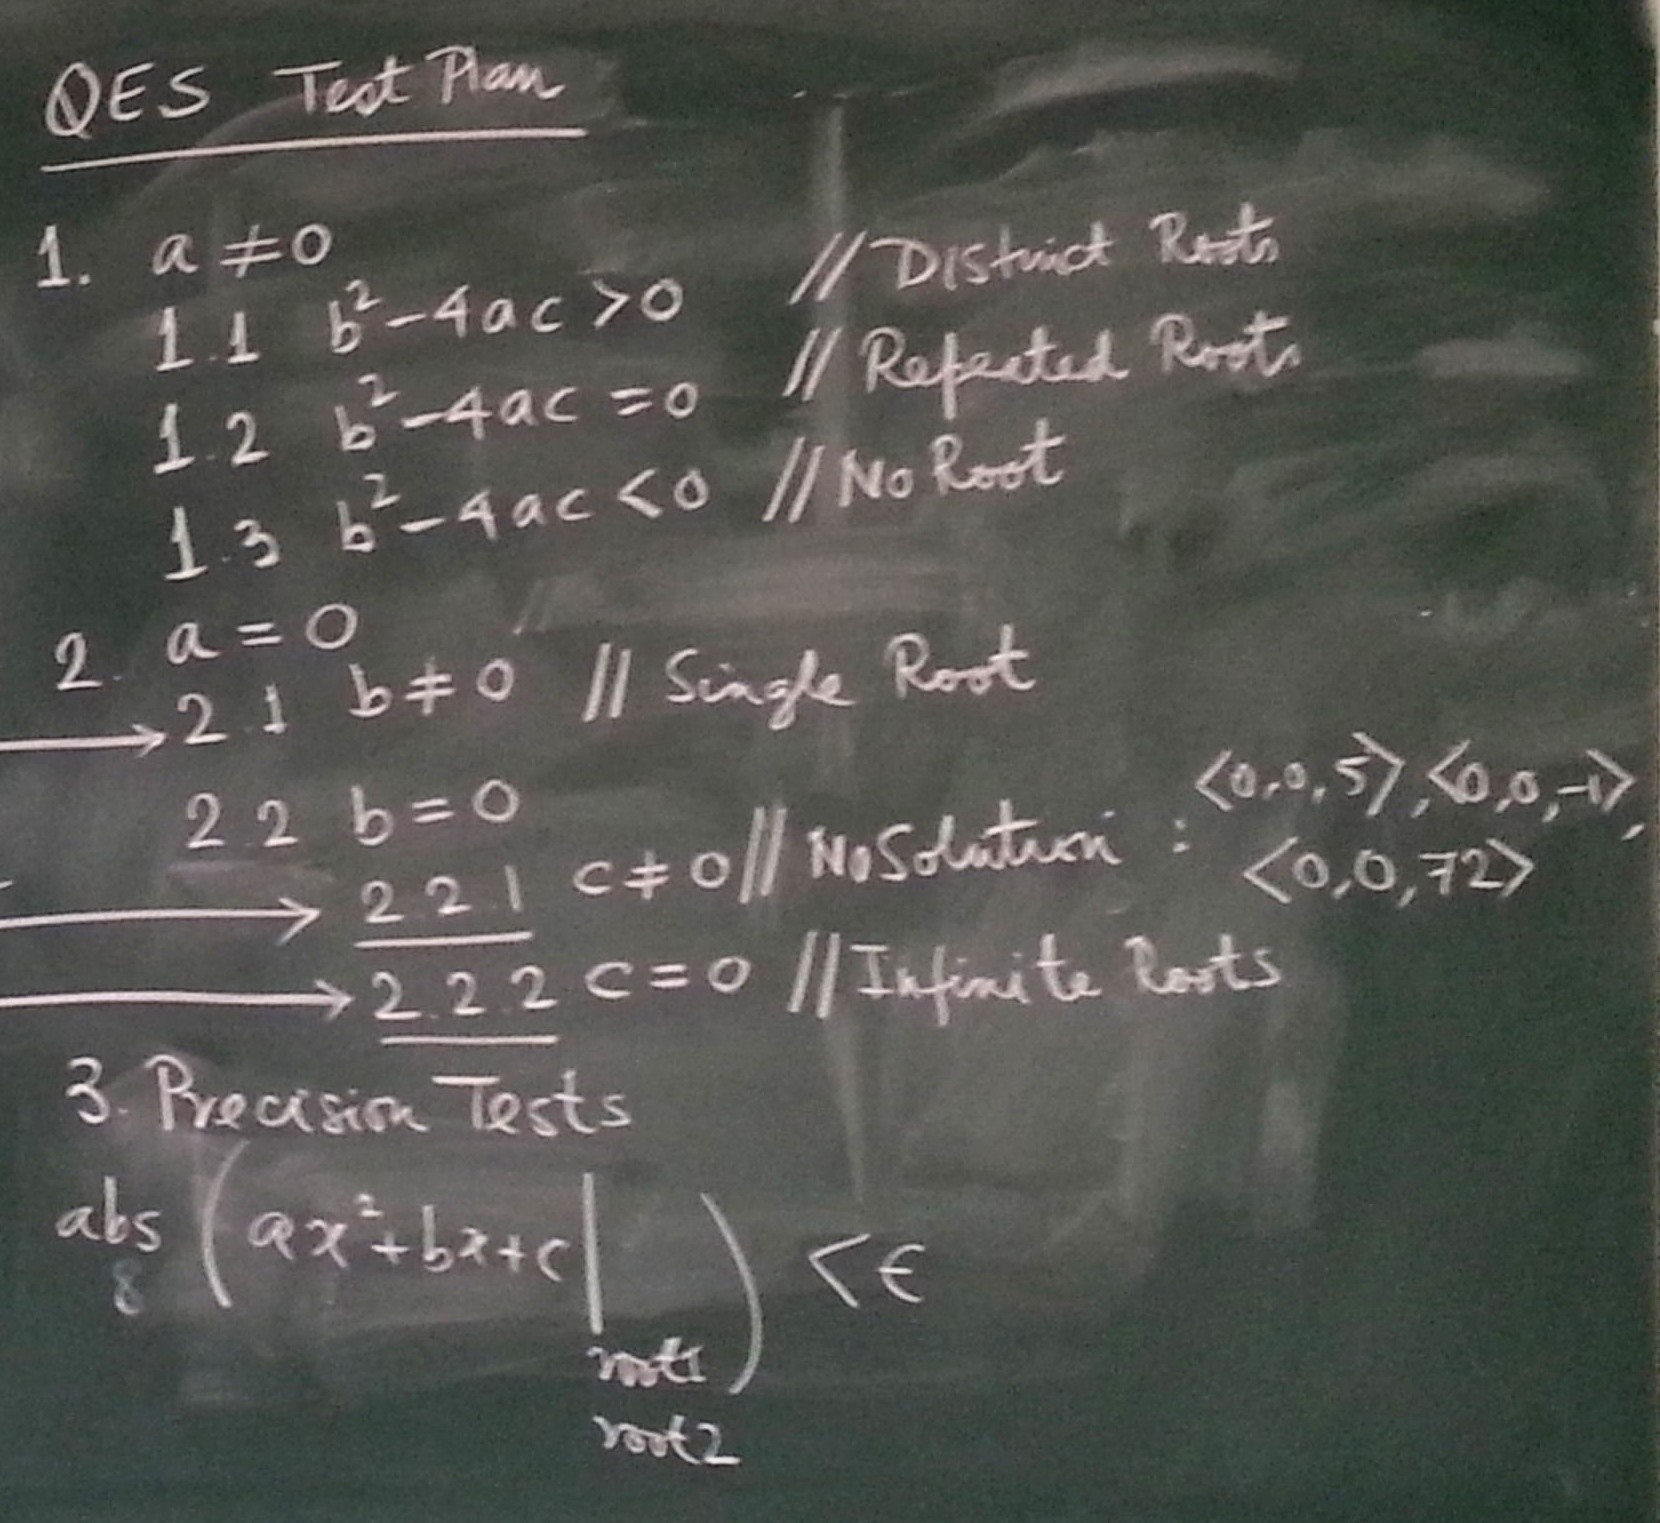 QES Test Plan
1. a ≠ 0
1.1 b²-4ac > 0 // Distinct Roots
1.2 b²-4ac = 0 // Repeated Roots
1.3 b²-4ac < 0 // No Root
2. a = 0
→ 2.1 b ≠ 0 // Single Root
2.2 b = 0
→ 2.2.1 c ≠ 0 // No Solution : <0,0,5>, <0,0,-1>,
<0,0,72>
→ 2.2.2 c = 0 // Infinite Roots
3. Precision Tests
abs (ax²+bx+c| ) < ϵ
8
root1
root2